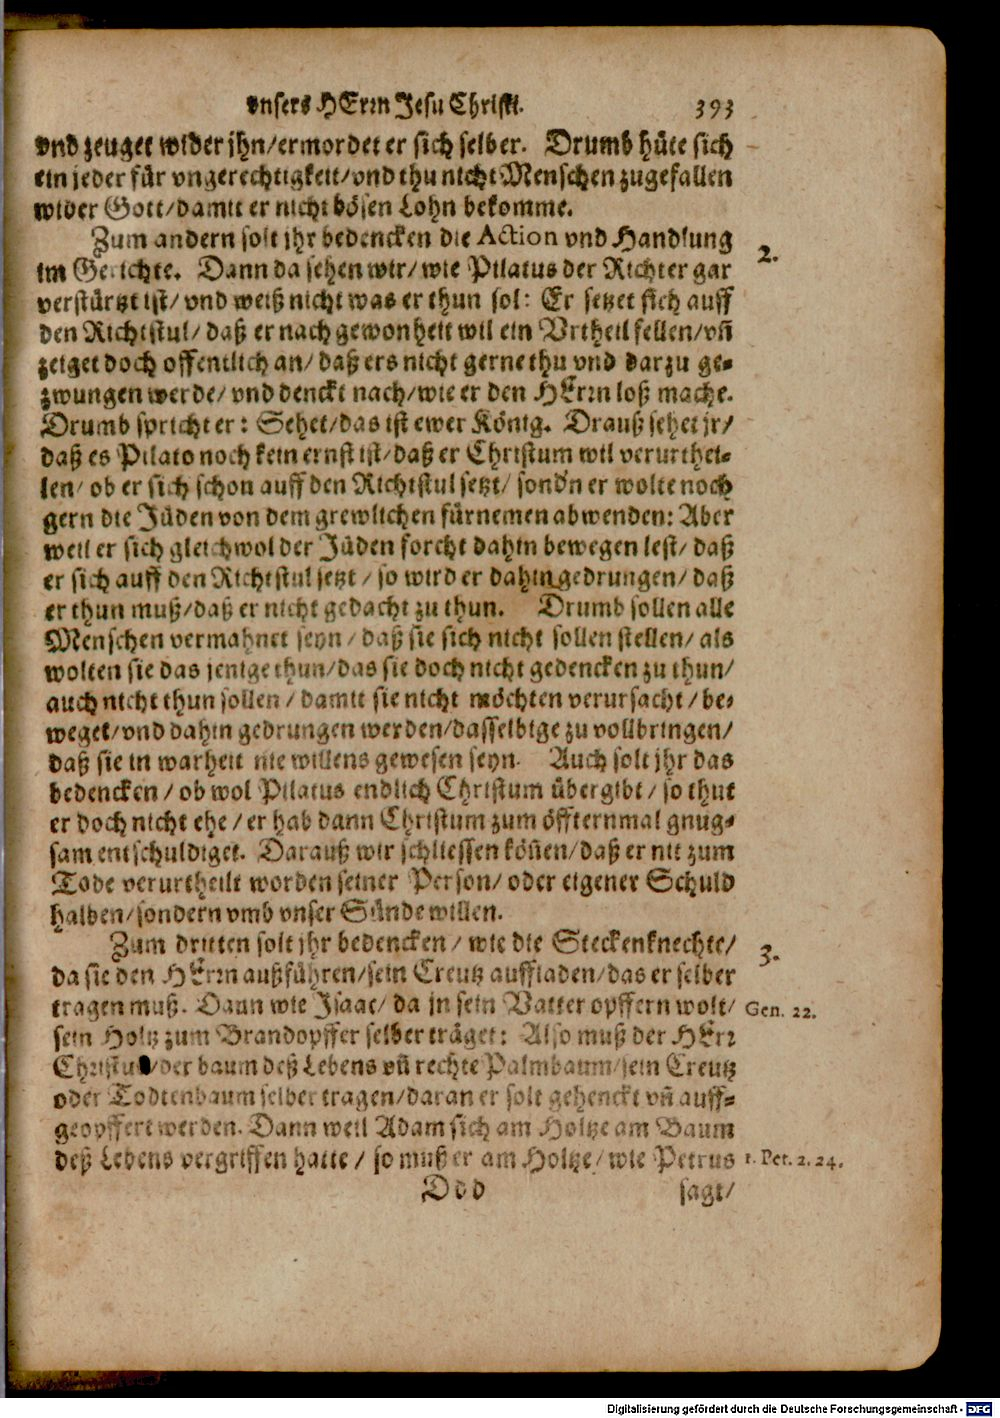 vnsers HErrn Jesu Christi. 393
vnd zeuget wider jhn/ermordet er sich selber. Drumb hüte sich
ein jeder für vngerechtigkeit/vnd thu nicht Menschen zugefallen
wider Gott/damit er nicht bösen Lohn bekomme.
Zum andern solt jhr bedencken die Action vnd Handlung
2.
im Gerichte. Dann da sehen wir/ wie Pilatus der Richter gar
verstürtzt ist/ vnd weiß nicht was er thun sol: Er setzet sich auff
den Richtstul/ daß er nach gewonheit wil ein Vrtheil fellen/vñ
zeiget doch offentlich an/ daß ers nicht gerne thu vnd darzu ge-
zwungen werde/ vnd denckt nach/wie er den HErrn loß mache.
Drumb spricht er: Sehet/das ist ewer König. Drauß sehet jr/
daß es Pilato noch kein ernst ist/daß er Christum wil verurthei-
len/ ob er sich schon auff den Richtstul setzt/ sondn er wolte noch
gern die Jüden von dem grewlichen fürnemen abwenden: Aber
weil er sich gleichwol der Jüden forcht dahin bewegen lest/ daß
er sich auff den Richtstul setzt / so wird er dahin gedrungen/ daß
er thun muß/daß er nicht gedacht zu thun. Drumb sollen alle
Menschen vermahnet seyn / daß sie sich nicht sollen stellen/ als
wolten sie das jenige thun/das sie doch nicht gedencken zu thun/
auch nicht thun sollen / damit sie nicht möchten verursacht / be-
weget/vnd dahin gedrungen werden/dasselbige zu vollbringen/
daß sie in warheit nie willens gewesen seyn. Auch solt jhr das
bedencken / ob wol Pilatus endlich Christum übergibt / so thut
er doch nicht ehe / er hab dann Christum zum öffternmal gnug-
sam entschuldiget. Darauß wir schliessen köñen/daß er nit zum
Tode verurtheilt worden seiner Person/ oder eigener Schuld
halben/sondern vmb vnser Sünde willen.
Zum dritten solt jhr bedencken / wie die Steckenknechte/
3.
da sie den HErrn außführen/sein Creutz auffladen/das er selber
tragen muß. Dann wie Isaac/ da jn sein Vatter opffern wolt/
Gen. 22.
sein Holtz zum Brandopffer selber träget: Also muß der HErr
Christus/der baum deß Lebens vñ rechte Palmbaum/sein Creutz
oder Todtenbaum selber tragen/daran er solt gehenckt vñ auff-
geopffert werden. Dann weil Adam sich am Holtze am Baum
deß Lebens vergriffen hatte / so muß er am Holtze/ wie Petrus
1. Pet. 2. 24.
Ddd sagt/
Digitalisierung gefördert durch die Deutsche Forschungsgemeinschaft - DFG